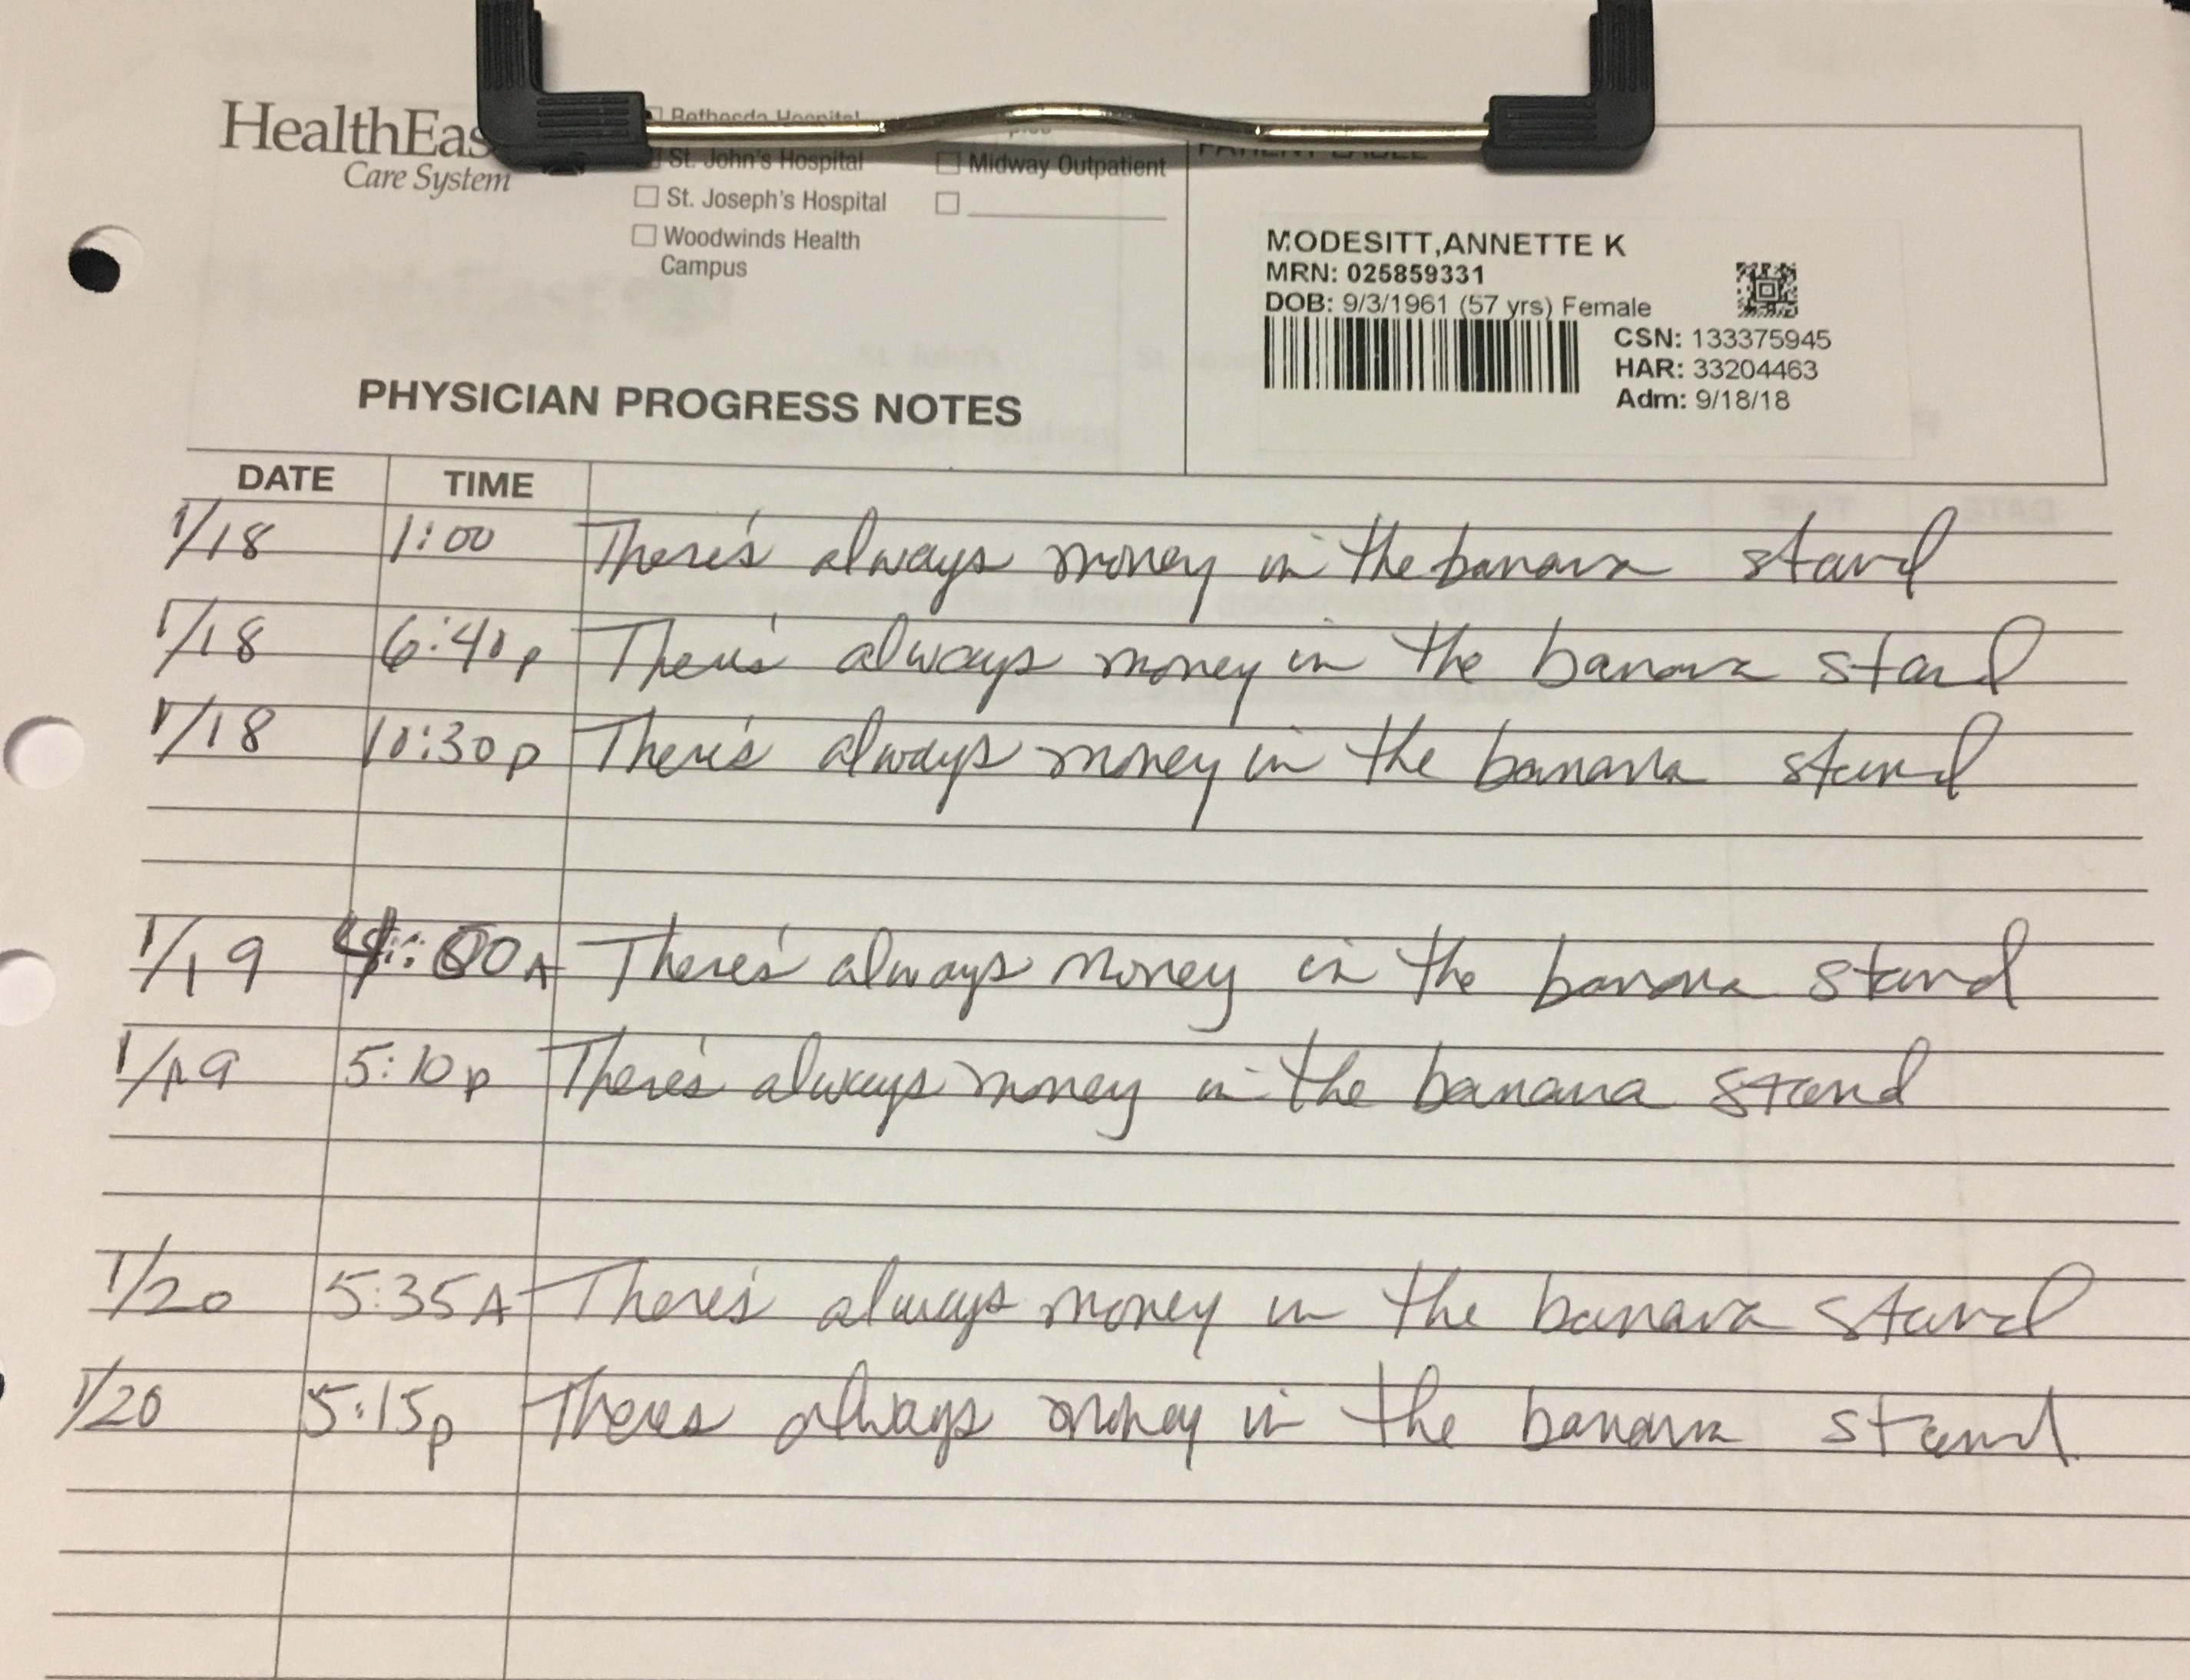 HealthEas
Care System
Bethesda Hospital
St. John's Hospital
St. Joseph's Hospital
Woodwinds Health
Campus
Midway Outpatient
PATIENT LABEL
MODESITT,ANNETTE K
MRN: 025859331
DOB: 9/3/1961 (57 yrs) Female
CSN: 133375945
HAR: 33204463
Adm: 9/18/18
PHYSICIAN PROGRESS NOTES
DATE TIME
1/18 1:00 There's always money in the banana stand
1/18 6:40p There's always money in the banana stand
1/18 10:30p There's always money in the banana stand
1/19 There's always money in the banana stand
1/19 5:10p There's always money in the banana stand
1/20 5:35A There's always money in the banana stand
1/20 5:15p Theres always money in the banana stand